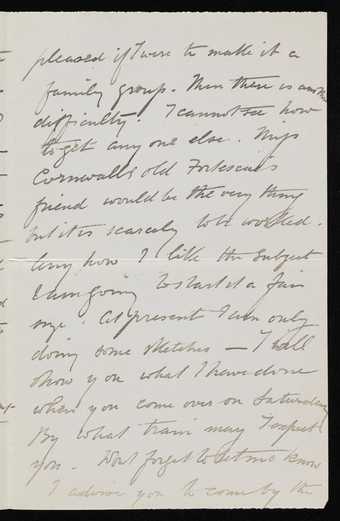 pleased if I were to make it a
family group. Then there is another
difficulty. I cannot see how
to get any one else. Miss
Cornwall's old Fortescue's
friend would be the very thing
but it is scarcely to be worked.
Any how I like the subject
I am going to start it a fair
size. At present I am only
doing some sketches — I will
show you what I have done
when you come over on Saturday
By what train may I expect
you. Don't forget to let me know
I advise you to come by the